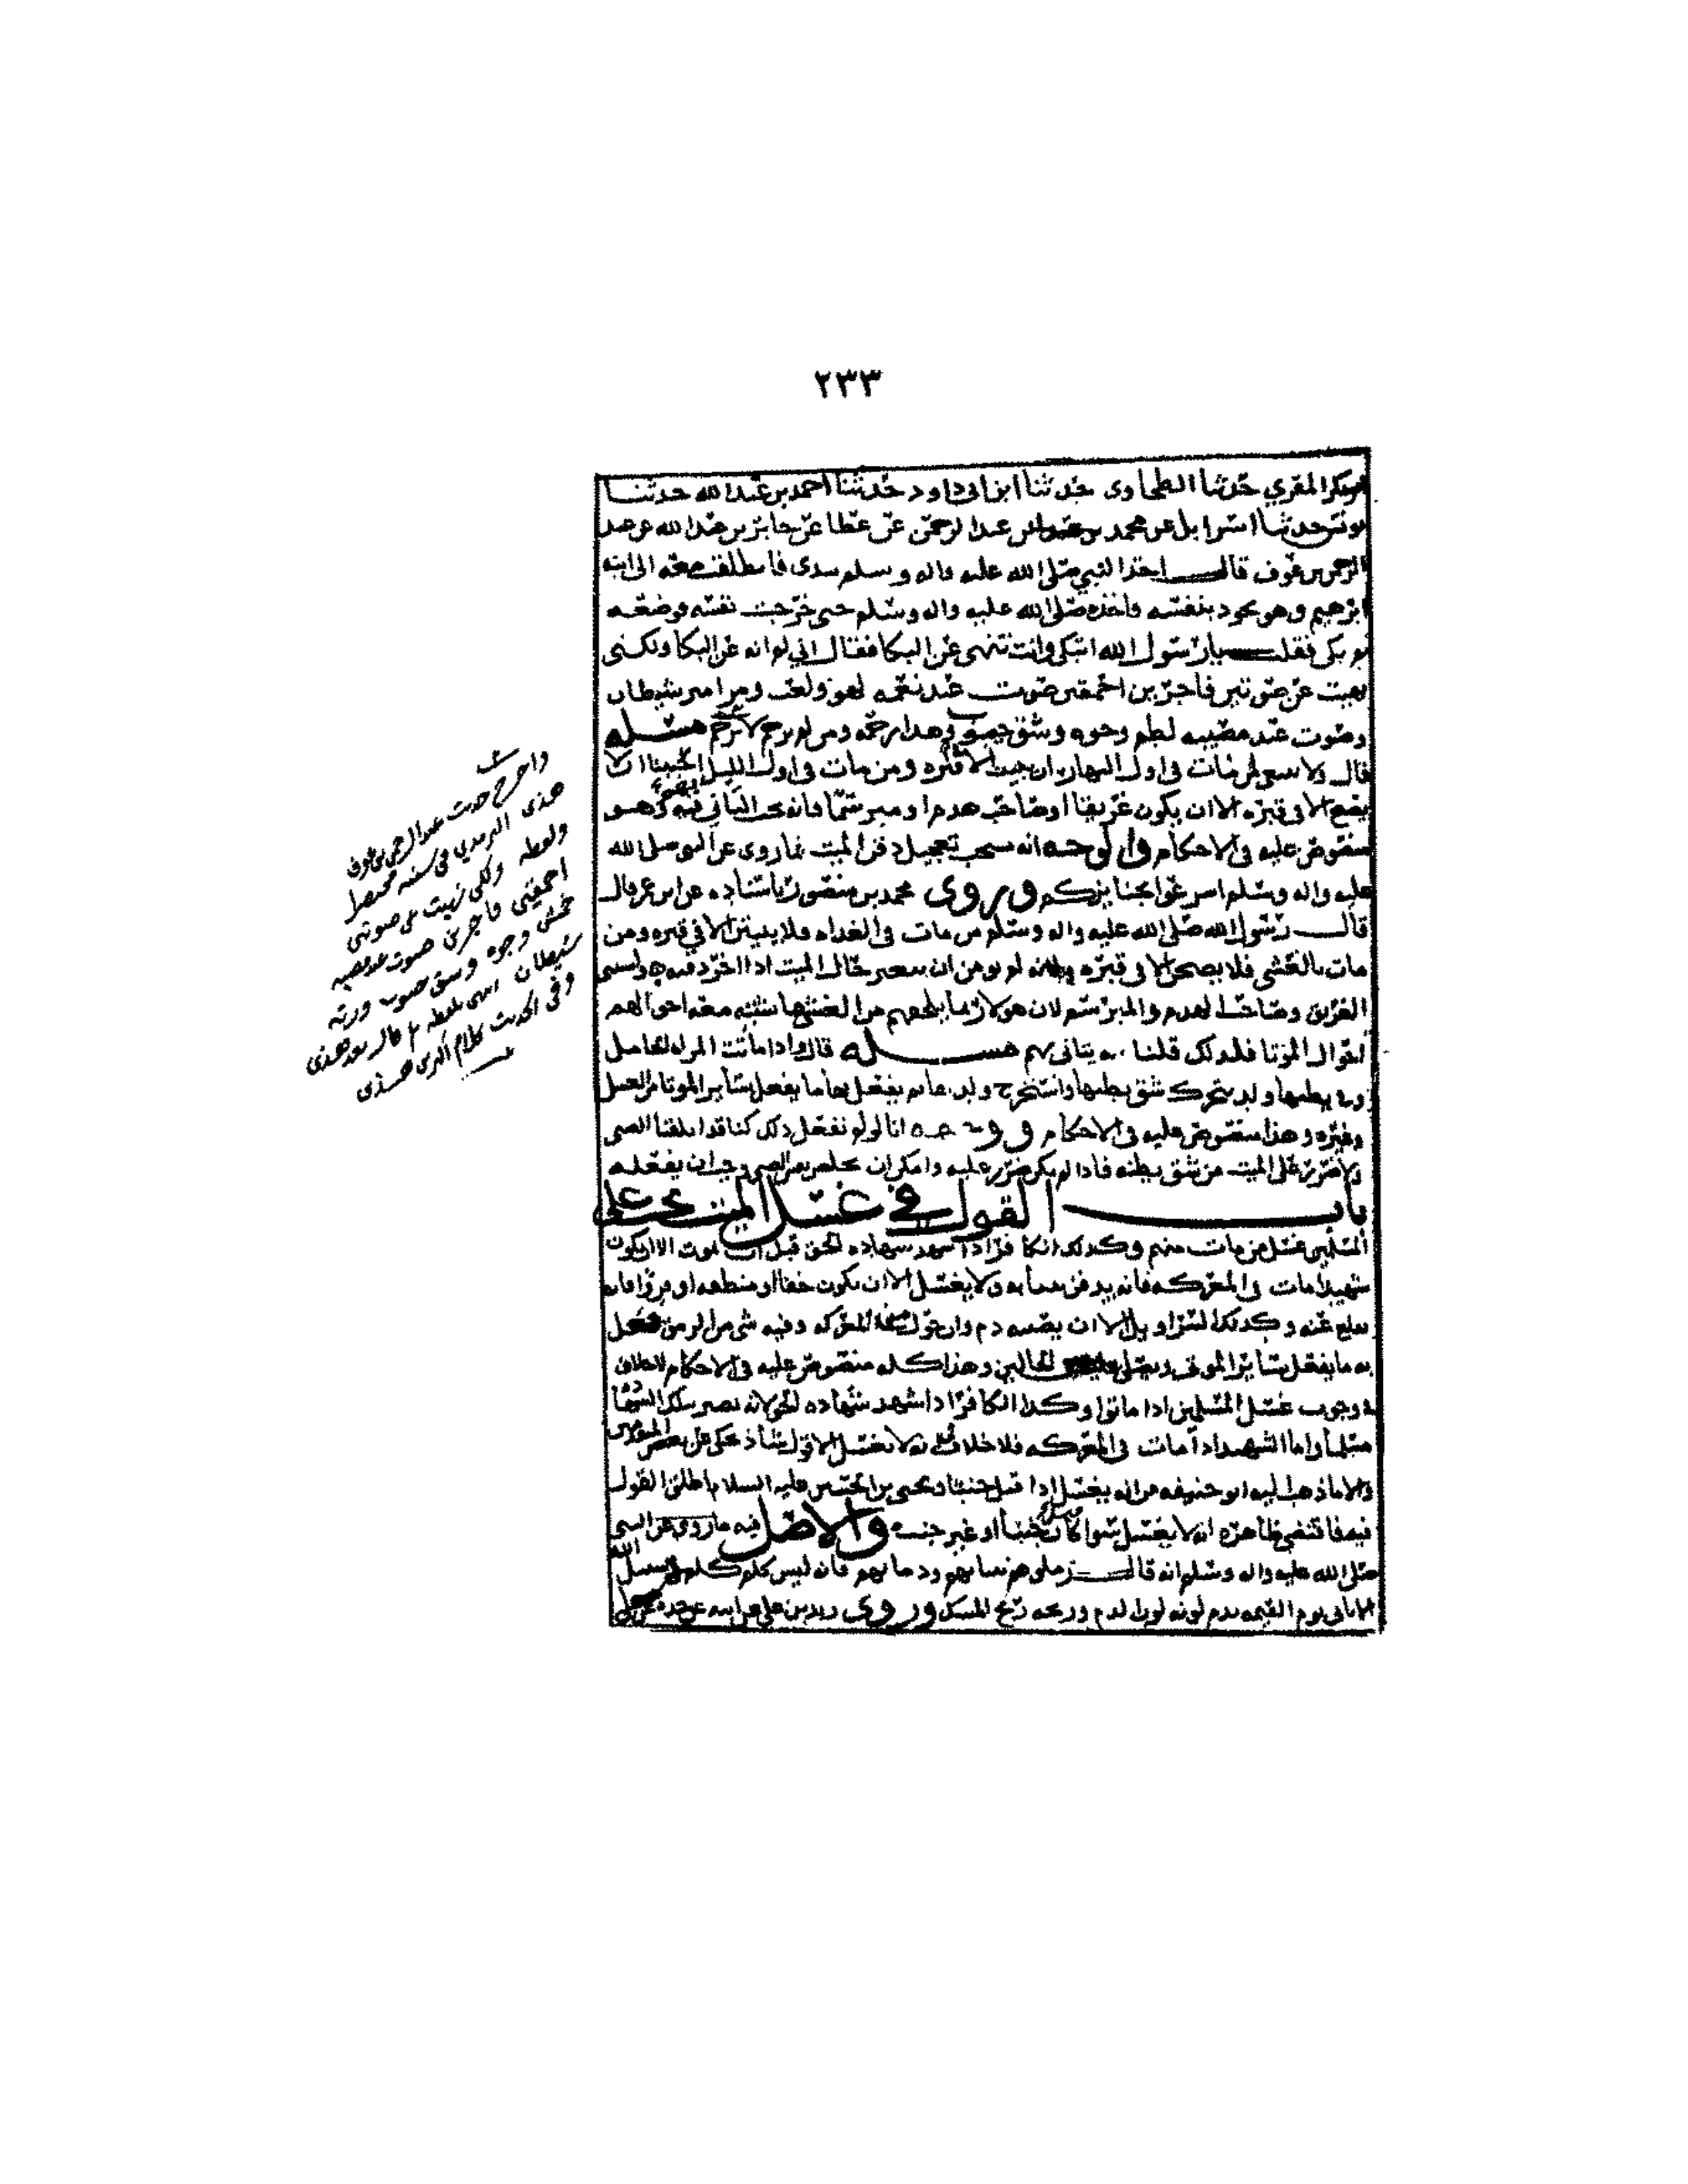 ٢٣٣
المقري حدثنا الطحاوى حدثنا ابن ابى داود حدثنا احمد بن عبد الله حدثنا
يونس حدثنا اسرايل عن محمد بن عبد الرحمن عن عطا عن جابر بن عبد الله عن عبد
الرحمن بن عوف قال اخذ النبي صلى الله عليه واله وسلم بيدى فانطلقت معه الى ابنه
ابرهيم وهو يجود بنفسه فاخذه صلى الله عليه واله وسلم حتى خرجت نفسه فوضعه
ثم بكى فقلت يا رسول الله اتبكى وانت تنهى عن البكا فقال اني لم انه عن البكا ولكنى
نهيت عن صوتين فاجرين احمقين صوت عند نغمه لهو ولعب ومزامير شيطان
وصوت عند مصيبه لطم وجوه وشق جيوب وهذا رحمه ومن لم يرحم لا يرحم مسئله
قال ولا ينبغى لمن مات فى اول النهار ان يبيت الا فى قبره ومن مات فى اول الليل ان لا
يصبح الا فى قبره الا ان يكون غريقا او صاحب هدم او مبرسما فانه يجب التاني بهم وهو
منصوص عليه فى الاحكام والوجه انه يستحب تعجيل دفن الميت لما روى عن النبى صلى الله
عليه واله وسلم اسرعوا بجنايزكم وروى محمد بن منصور باسناده عن ابن عمر قال
قال رسول الله صلى الله عليه واله وسلم من مات فى الغداه فلا يبيتن الا في قبره ومن
مات بالعشى فلا يصبحن الا فى قبره ولانه لم يومن ان يتغير حال الميت اذا اخر دفنه واستثنى
الغريق وصاحب الهدم والمبرسم لان هولا ربما يلحقهم من الغشى ما تشتبه معه احوالهم
احوال الموتا فلذلك قلنا يتانى بهم مسئله قال واذا ماتت المراه الحامل
وفى بطنها ولد يتحرك شق بطنها واستخرج ولدها ثم يفعل بها ما يفعل بساير الموتا من الغسل
وغيره وهذا منصوص عليه فى الاحكام ووجهه انا لو لم نفعل ذلك كنا قد اتلفنا الصبى
ولا ضرر على الميت من شق بطنه فاذا لم يكن ضرر عليه وامكن ان يخلص الصبى وجب ان يفعله
باب القول فى غسل الميت يجب على
المسلمين غسل من مات منهم وكذلك الكافر اذا شهد شهاده الحق قبل الموت الا ان يكون
شهيدا مات فى المعركه فانه يدفن بثيابه ولا يغسل الا ان يكون خفا او منطقه او فروا فانه
يقلع عنه وكذلك السراويل الا ان يصيبه دم وان حول من المعركه وفيه شى من الرمق فعل
به ما يفعل بساير الموتى ويصلى عليه فى الحالين وهذا كله منصوص عليه فى الاحكام لا خلاف
فى وجوب غسل المسلمين اذا ماتوا وكذا الكافر اذا شهد شهاده الحق لانه يصير بتلك الشهاده
مسلما واما الشهيد اذا مات فى المعركه فلا خلاف فى انه لا يغسل الا قول شاذ يحكى عن بعض المتقدمين
والا ما ذهب اليه ابو حنيفه من انه يغسل اذا قتل جنبا ويحيى بن الحسين عليه السلام اطلق القول
فيه فاقتضى ظاهره انه لا يغسل سوا كان جنبا او غير جنب والاصل فيه ما روى عن النبى
صلى الله عليه واله وسلم انه قال زملوهم بثيابهم ودمايهم فانه ليس كلم كلم فى سبيل الله
الا ياتى يوم القيمه بدم لونه لون الدم وريحه ريح المسك وروى زيد بن علي عن ابيه عن جده عن على
واخرج حديث عبد الرحمن بن عوف
هذى الترمذي فى سننه مختصرا
ولفظه ولكن نهيت عن صوتين
احمقين فاجرين صوت عند مصيبه
خمش وجوه وشق جيوب ورنه
شيطان انتهى بلفظه ثم قال بعد هذى
وفى الحديث كلام اكثر من هذى